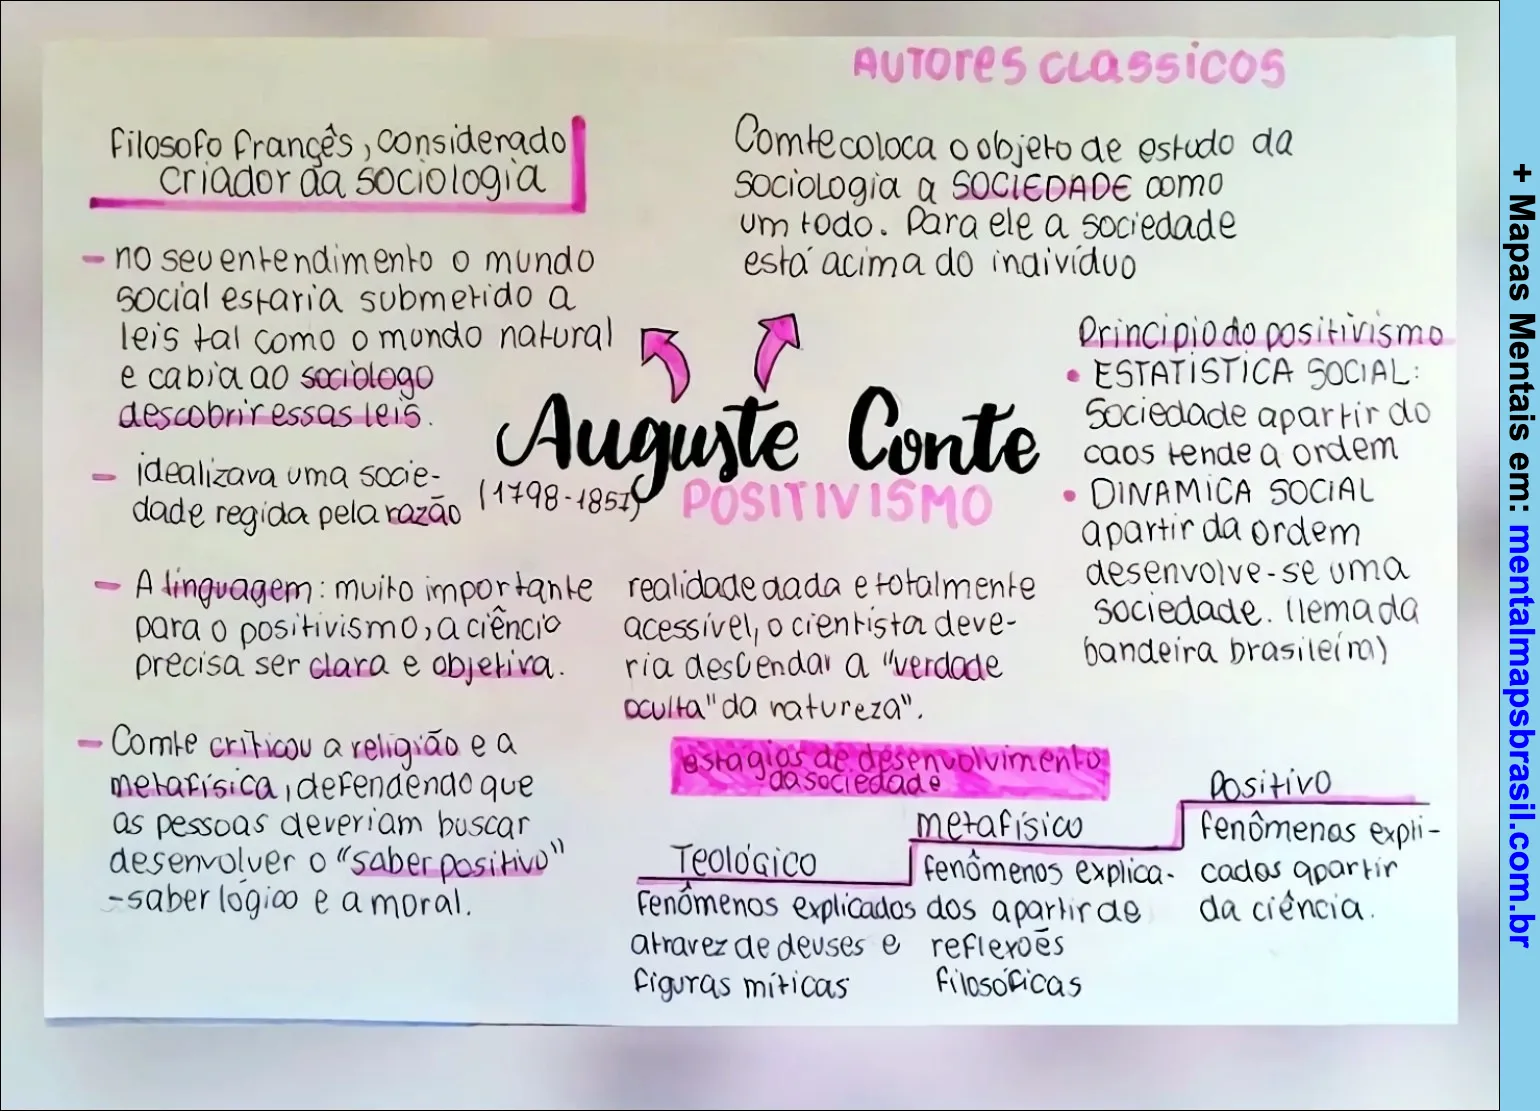 AUTORES CLASSICOS
Filosofo françês, considerado
criador da sociologia
- no seu entendimento o mundo
social estaria submetido a
leis tal como o mundo natural
e cabia ao sociologo
descobrir essas leis.
- idealizava uma socie-
dade regida pela razão
- A linguagem: muito importante
para o positivismo, a ciência
precisa ser clara e objetiva.
- Comte criticou a religião e a
metafísica, defendendo que
as pessoas deveriam buscar
desenvolver o "saber positivo"
-saber lógico e a moral.
Comte coloca o objeto de estudo da
sociologia a SOCIEDADE como
um todo. Para ele a sociedade
está acima do indivíduo
Auguste Conte
(1798-1857)
POSITIVISMO
realidade dada e totalmente
acessível, o cientista deve-
ria desvendar a "verdade
oculta" da natureza".
Principio do positivismo
• ESTATÍSTICA SOCIAL:
sociedade apartir do
caos tende a ordem
• DINAMICA SOCIAL
apartir da ordem
desenvolve-se uma
sociedade. (lema da
bandeira brasileira)
estágios de desenvolvimento
da sociedade
Teológico
Fenômenos explicados
atravez de deuses e
figuras míticas
metafísico
fenômenos explica-
dos apartir de
reflexões
filosóficas
Positivo
fenômenos expli-
cados apartir
da ciência.
+ Mapas Mentais em: mentalmapsbrasil.com.br